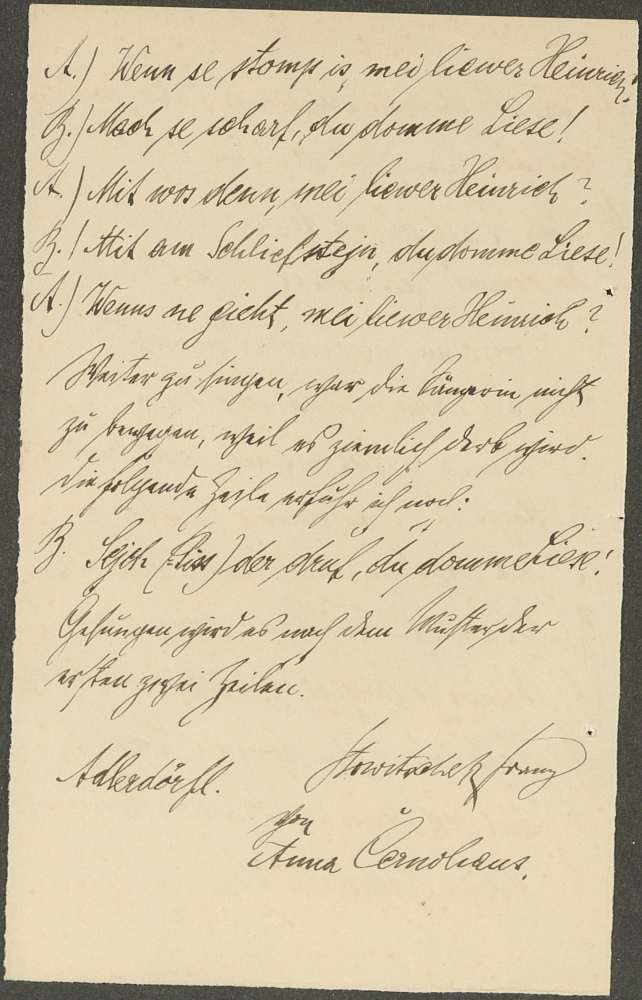 A.) Wenn se stomp is, mei liewer Heinrich?
B.) Mach se scharf, du domme Liese!
A.) Mit wos denn, mei liewer Heinrich?
B.) Mit am Schliefstejn, du domme Liese!
A.) Wenns ne gieht, mei liewer Heinrich?
Weiter zu singen, war die Sängerin nicht
zu bewegen, weil es ziemlich derb wird.
Die folgende Zeile erfuhr ich noch:
B. Sejch (Piss) der druf, du domme Liese!
Gesungen wird es nach dem Muster der
ersten zwei Zeilen.
Adlerdörfl. Franz
von
Anna Černohaus.